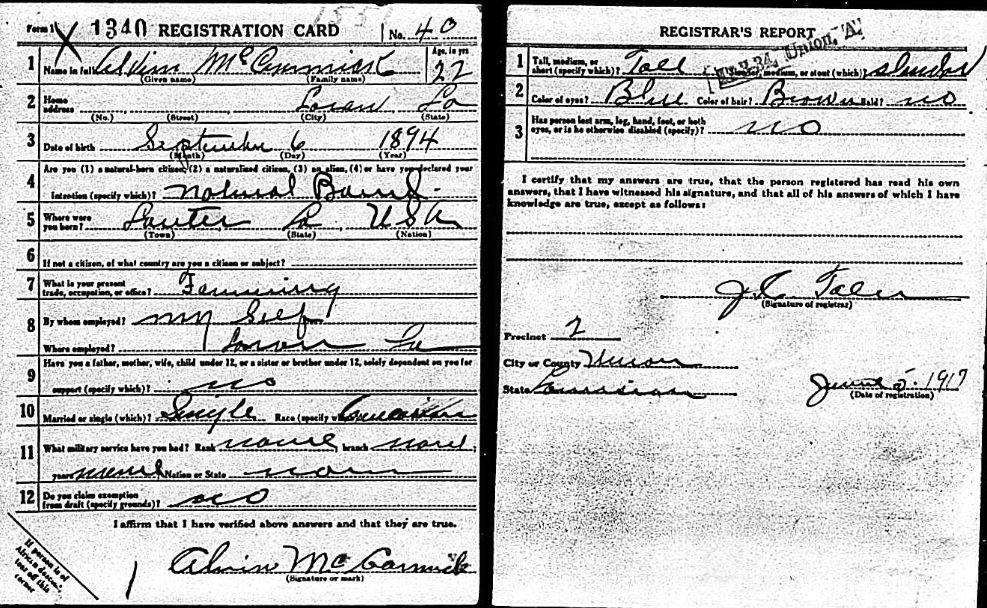 Form 1 1340 REGISTRATION CARD No. 40
1 Name in full Alvin McCormick Age, in yrs 22
(Given name) (Family name)
2 Home address La
(No.) (Street) (City) (State)
3 Date of birth September 6 1894
(Month) (Day) (Year)
4 Are you (1) a natural-born citizen, (2) a naturalized citizen, (3) an alien, (4) or have you declared your
intention (specify which)? natural
5 Where were you born? La USA
(Town) (State) (Nation)
6 If not a citizen, of what country are you a citizen or subject?
7 What is your present trade, occupation, or office?
8 By whom employed? my Self
Where employed? La
9 Have you a father, mother, wife, child under 12, or a sister or brother under 12, solely dependent on you for
support (specify which)? no
10 Married or single (which)? Single Race (specify which)?
11 What military service have you had? Rank none; branch none;
years none Nation or State none
12 Do you claim exemption from draft (specify grounds)? no
I affirm that I have verified above answers and that they are true.
Alvin McCormick
(Signature or mark)
If person is of
African descent,
tear off this
corner
REGISTRAR'S REPORT
Union, "A"
1 Tall, medium, or short (specify which)? Tall Slender, medium, or stout (which)? slender
2 Color of eyes? Blue Color of hair? Brown Bald? no
3 Has person lost arm, leg, hand, foot, or both
eyes, or is he otherwise disabled (specify)? no
I certify that my answers are true, that the person registered has read his own
answers, that I have witnessed his signature, and that all of his answers of which I have
knowledge are true, except as follows:
(Signature of registrar)
Precinct 2
City or County Union
State Louisiana June 5, 1917
(Date of registration)